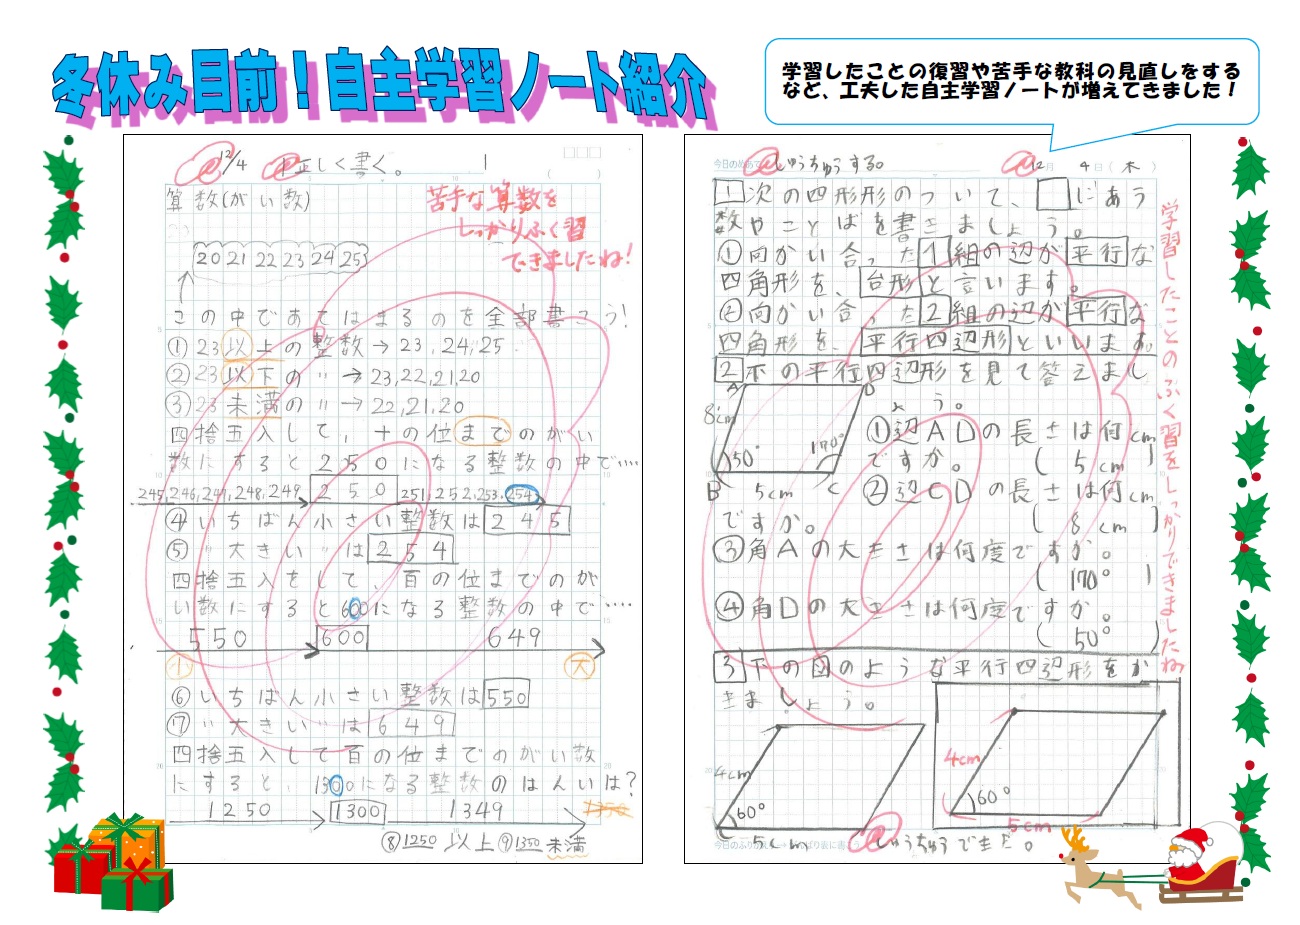 冬休み目前！自主学習ノート紹介
学習したことの復習や苦手な教科の見直しをする
など、工夫した自主学習ノートが増えてきました！
12/4 正しく書く。
算数(がい数)
苦手な算数を
しっかりふく習
できましたね！
20 21 22 23 24 25
この中であてはまるのを全部書こう！
①23以上の整数→23,24,25
②23以下の〃→23,22,21,20
③23未満の〃→22,21,20
四捨五入して、十の位までのがい
数にすると250になる整数の中で‥‥
245,246,247,248,249 250 251,252,253,254
④いちばん小さい整数は245
⑤〃大きい〃は254
四捨五入をして、百の位までのが
い数にすると600になる整数の中で‥‥
550 600 649
小 大
⑥いちばん小さい整数は550
⑦〃大きい〃は649
四捨五入して百の位までのがい数
にすると、1300になる整数のはんいは？
1250 1300 1349 1350
⑧1250以上⑨1350未満
今日のめあて しゅうちゅうする。 12月4日(木)
1次の四形形のついて、□にあう
数やことばを書きましょう。
①向かい合った1組の辺が平行な
四角形を、台形と言います。
②向かい合った2組の辺が平行な
四角形を、平行四辺形といいます。
2下の平行四辺形を見て答えまし
ょう。
A D
8cm
50° 170°
B 5cm C
①辺ADの長さは何cm
ですか。 (5cm)
②辺CDの長さは何cm
ですか。 (8cm)
③角Aの大きさは何度ですか。
(170°)
④角Dの大きさは何度ですか。
(50°)
3下の図のような平行四辺形をか
きましょう。
4cm 60° 5cm
4cm 60° 5cm
しゅうちゅうできた。
学習したことのふく習をしっかりできましたね